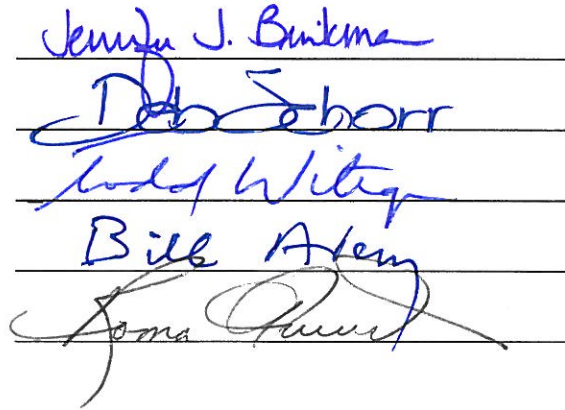 Jennifer J. Brinkman
Deb Schorr
Todd Wiltgen
Bill Avery
Roma